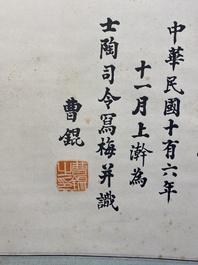 中華民國十有六年
十一月上澣為
士陶司令寫梅并識
曹錕